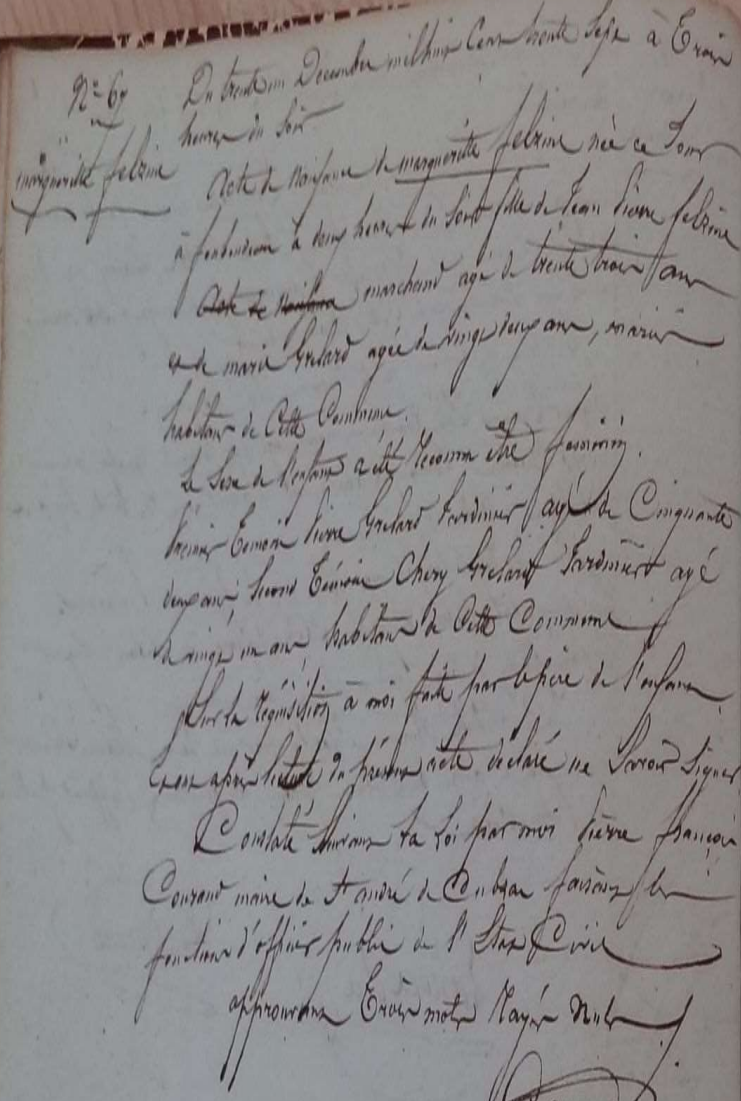 N° 67
marguerite felzine
Du trente un Decembre mil huit Cent trente Sept à Trois
heures du Soir
Acte de Naissance de marguerite felzine née ce Jour
à à deux heures du Soir fille de Jean Pierre felzine
Acte de Naissance marchand agé de trente trois ans
et de marie Grelard agée de vingt deux ans, mariés
habitans de Cette Commune.
Le Sexe de l'enfant a été reconnu être feminin.
Premier Témoin Pierre Grelard Jardinier agé de Cinquante
deux ans, Second Témoin Chery Grelard Jardinier agé
de vingt un ans habitans de Cette Commune
Sur la réquisition à moi faite par le père de l'enfant
après lecture du présent acte declaré ne Savoir Signer
Constaté Suivant La Loi par moi Pierre françois
Courand maire de St andré de Cubzac faisant les
fonctions d'officier public de l'Etat Civil
approuvant Trois mots Rayés Nuls